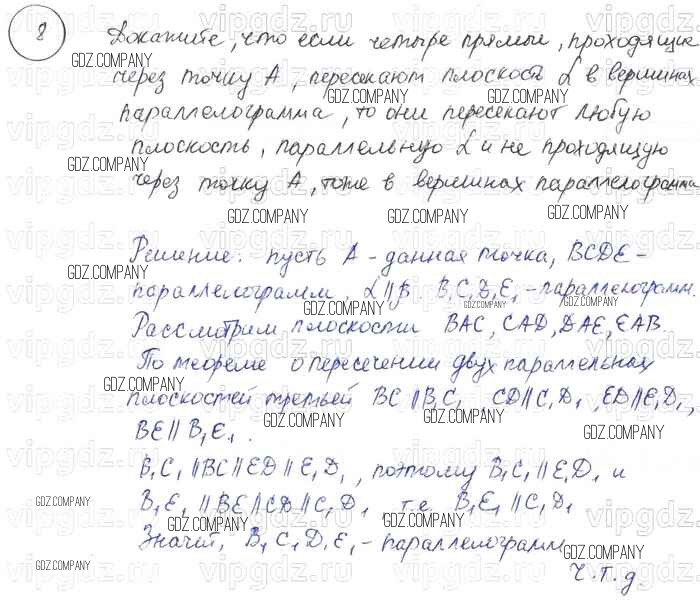 8
Докажите, что если четыре прямые, проходящие
через точку А, пересекают плоскость α в вершинах
параллелограмма, то они пересекают любую
плоскость, параллельную α и не проходящую
через точку А, тоже в вершинах параллелограмма
Решение: пусть А - данная точка, BCDE -
параллелограмм, α || β. B₁C₁D₁E₁ - параллелограмм.
Рассмотрим плоскости BAC, CAD, DAE, EAB.
По теореме о пересечении двух параллельных
плоскостей третьей BC || B₁C₁, CD || C₁D₁, ED || E₁D₁,
BE || B₁E₁.
B₁C₁ || BC || ED || E₁D₁, поэтому B₁C₁ || E₁D₁ и
B₁E₁ || BE || CD || C₁D₁ т.е. B₁E₁ || C₁D₁
Значит, B₁C₁D₁E₁ - параллелограмм
ч.т.д.